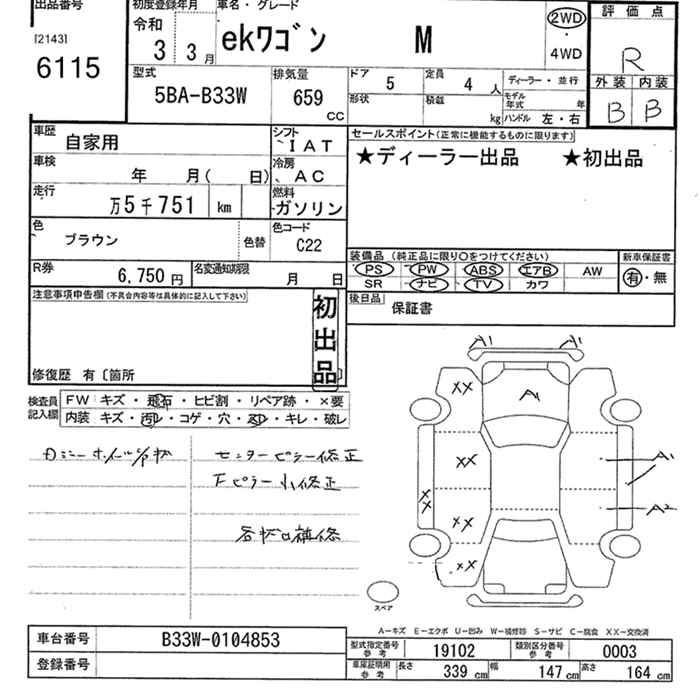 出品番号
[2143]
6115
初度登録年月
令和
3 3月
車名・グレード
ekワゴン M
2WD
・
4WD
評価点
R
外装 内装
B B
型式
5BA-B33W
排気量
659
CC
ドア 5
定員 4 人
ディーラー・並行
形状
積載 kg
モデル年式 年
ハンドル 左・右
車歴 自家用
シフト
IAT
車検 年 月( 日)
冷房
AC
走行
万5千751 km
燃料
ガソリン
色
ブラウン
色替
色コード
C22
R券
6,750円
名変通知期限
月 日
セールスポイント(正常に機能するものに限ります)
★ディーラー出品 ★初出品
装備品(純正品に限り○をつけてください)
新車保証書
PS PW ABS エアB AW
SR ナビ TV カワ
有・無
後日品
保証書
注意事項申告欄(不具合内容等は具体的に記入して下さい)
初出品
修復歴 有〔箇所 〕
検査員
記入欄
FW キズ・飛石・ヒビ割・リペア跡・×要
内装 キズ・汚レ・コゲ・穴・スレ・キレ・破レ
センターピラー修正
Fピラー小修正
A1 A1
A
XX
XX
XX
XX
XX
A1
A2
スペア
A-キズ E-エクボ U-凹み W-補修跡 S-サビ C-腐食 XX-交換済
車台番号
B33W-0104853
登録番号
型式指定番号
参考
19102
類別区分番号
参考
0003
車庫証明用
参考
長さ 339 cm
幅 147 cm
高さ 164 cm